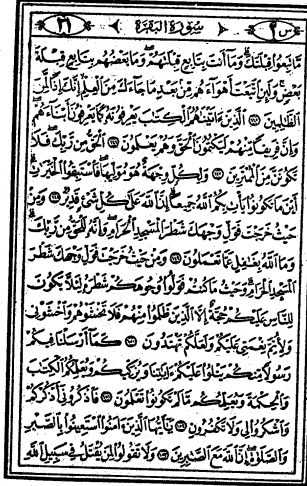 س ٢ سُورَةُ الْبَقَرَةِ ٢١
مَّا تَبِعُوا۟ قِبْلَتَكَ وَمَآ أَنتَ بِتَابِعٍ قِبْلَتَهُمْ وَمَا بَعْضُهُم بِتَابِعٍ قِبْلَةَ
بَعْضٍ وَلَئِنِ ٱتَّبَعْتَ أَهْوَآءَهُم مِّنۢ بَعْدِ مَا جَآءَكَ مِنَ ٱلْعِلْمِ إِنَّكَ إِذًا لَّمِنَ
ٱلظَّٰلِمِينَ ١٤٥ ٱلَّذِينَ ءَاتَيْنَٰهُمُ ٱلْكِتَٰبَ يَعْرِفُونَهُۥ كَمَا يَعْرِفُونَ أَبْنَآءَهُمْ
وَإِنَّ فَرِيقًا مِّنْهُمْ لَيَكْتُمُونَ ٱلْحَقَّ وَهُمْ يَعْلَمُونَ ١٤٦ ٱلْحَقُّ مِن رَّبِّكَ فَلَا
تَكُونَنَّ مِنَ ٱلْمُمْتَرِينَ ١٤٧ وَلِكُلٍّ وِجْهَةٌ هُوَ مُوَلِّيهَا فَٱسْتَبِقُوا۟ ٱلْخَيْرَٰتِ
أَيْنَ مَا تَكُونُوا۟ يَأْتِ بِكُمُ ٱللَّهُ جَمِيعًا إِنَّ ٱللَّهَ عَلَىٰ كُلِّ شَىْءٍ قَدِيرٌ ١٤٨ وَمِنْ
حَيْثُ خَرَجْتَ فَوَلِّ وَجْهَكَ شَطْرَ ٱلْمَسْجِدِ ٱلْحَرَامِ وَإِنَّهُۥ لَلْحَقُّ مِن رَّبِّكَ
وَمَا ٱللَّهُ بِغَٰفِلٍ عَمَّا تَعْمَلُونَ ١٤٩ وَمِنْ حَيْثُ خَرَجْتَ فَوَلِّ وَجْهَكَ شَطْرَ
ٱلْمَسْجِدِ ٱلْحَرَامِ وَحَيْثُ مَا كُنتُمْ فَوَلُّوا۟ وُجُوهَكُمْ شَطْرَهُۥ لِئَلَّا يَكُونَ
لِلنَّاسِ عَلَيْكُمْ حُجَّةٌ إِلَّا ٱلَّذِينَ ظَلَمُوا۟ مِنْهُمْ فَلَا تَخْشَوْهُمْ وَٱخْشَوْنِى
وَلِأُتِمَّ نِعْمَتِى عَلَيْكُمْ وَلَعَلَّكُمْ تَهْتَدُونَ ١٥٠ كَمَآ أَرْسَلْنَا فِيكُمْ
رَسُولًا مِّنكُمْ يَتْلُوا۟ عَلَيْكُمْ ءَايَٰتِنَا وَيُزَكِّيكُمْ وَيُعَلِّمُكُمُ ٱلْكِتَٰبَ
وَٱلْحِكْمَةَ وَيُعَلِّمُكُم مَّا لَمْ تَكُونُوا۟ تَعْلَمُونَ ١٥١ فَٱذْكُرُونِىٓ أَذْكُرْكُمْ
وَٱشْكُرُوا۟ لِى وَلَا تَكْفُرُونِ ١٥٢ يَٰٓأَيُّهَا ٱلَّذِينَ ءَامَنُوا۟ ٱسْتَعِينُوا۟ بِٱلصَّبْرِ
وَٱلصَّلَوٰةِ إِنَّ ٱللَّهَ مَعَ ٱلصَّٰبِرِينَ ١٥٣ وَلَا تَقُولُوا۟ لِمَن يُقْتَلُ فِى سَبِيلِ ٱللَّهِ